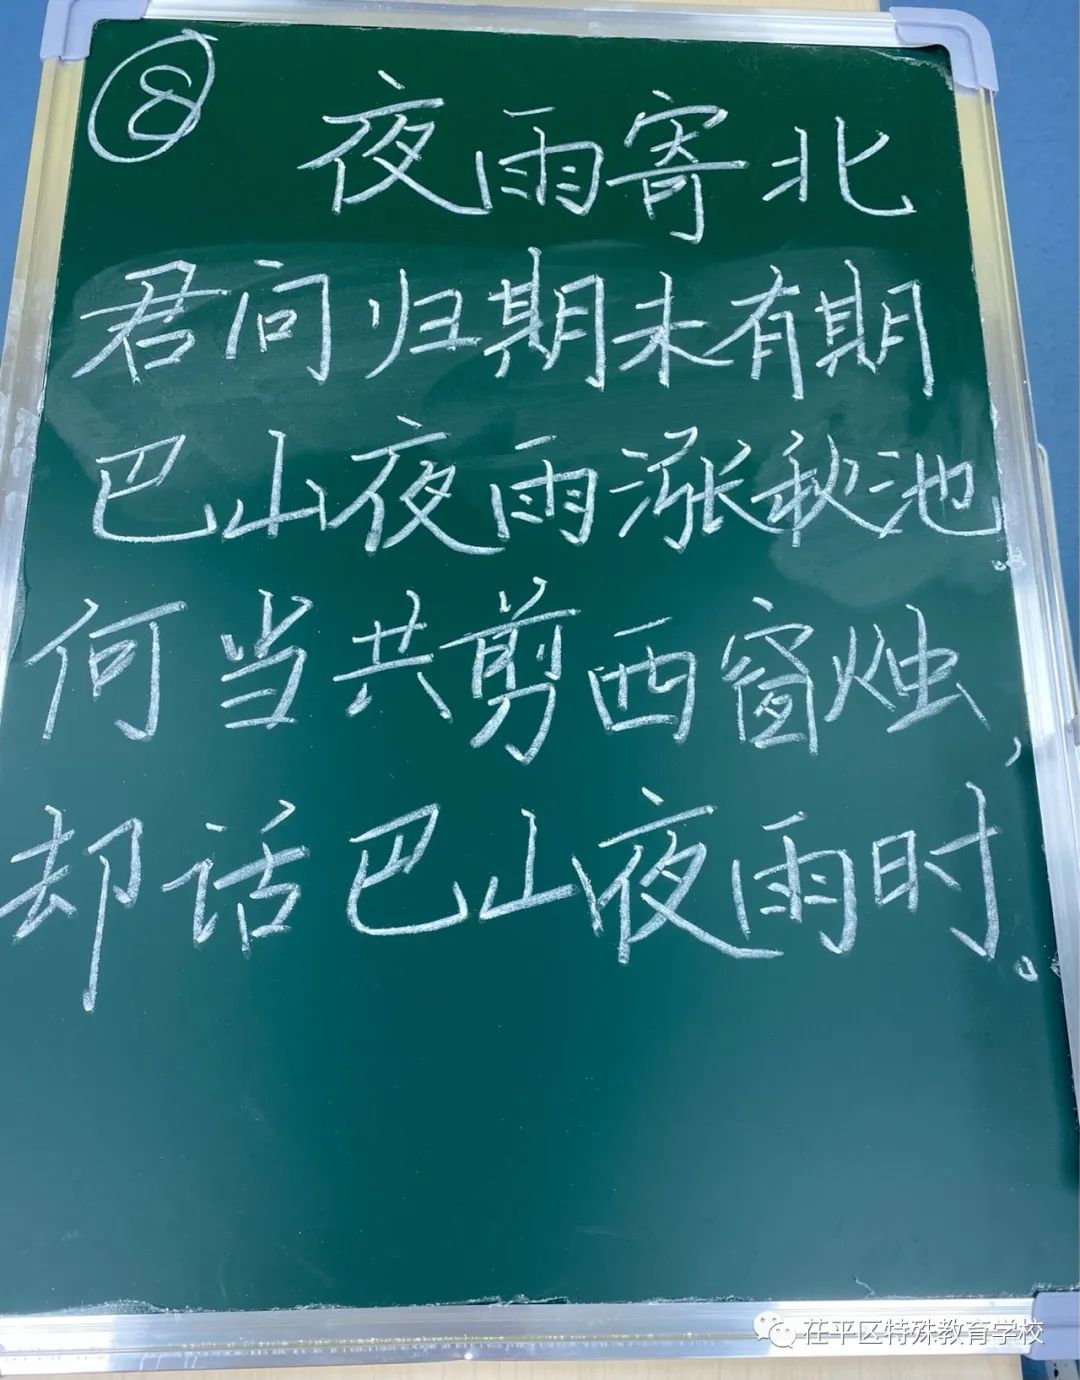 8
夜雨寄北
君问归期未有期
巴山夜雨涨秋池。
何当共剪西窗烛，
却话巴山夜雨时。
茌平区特殊教育学校